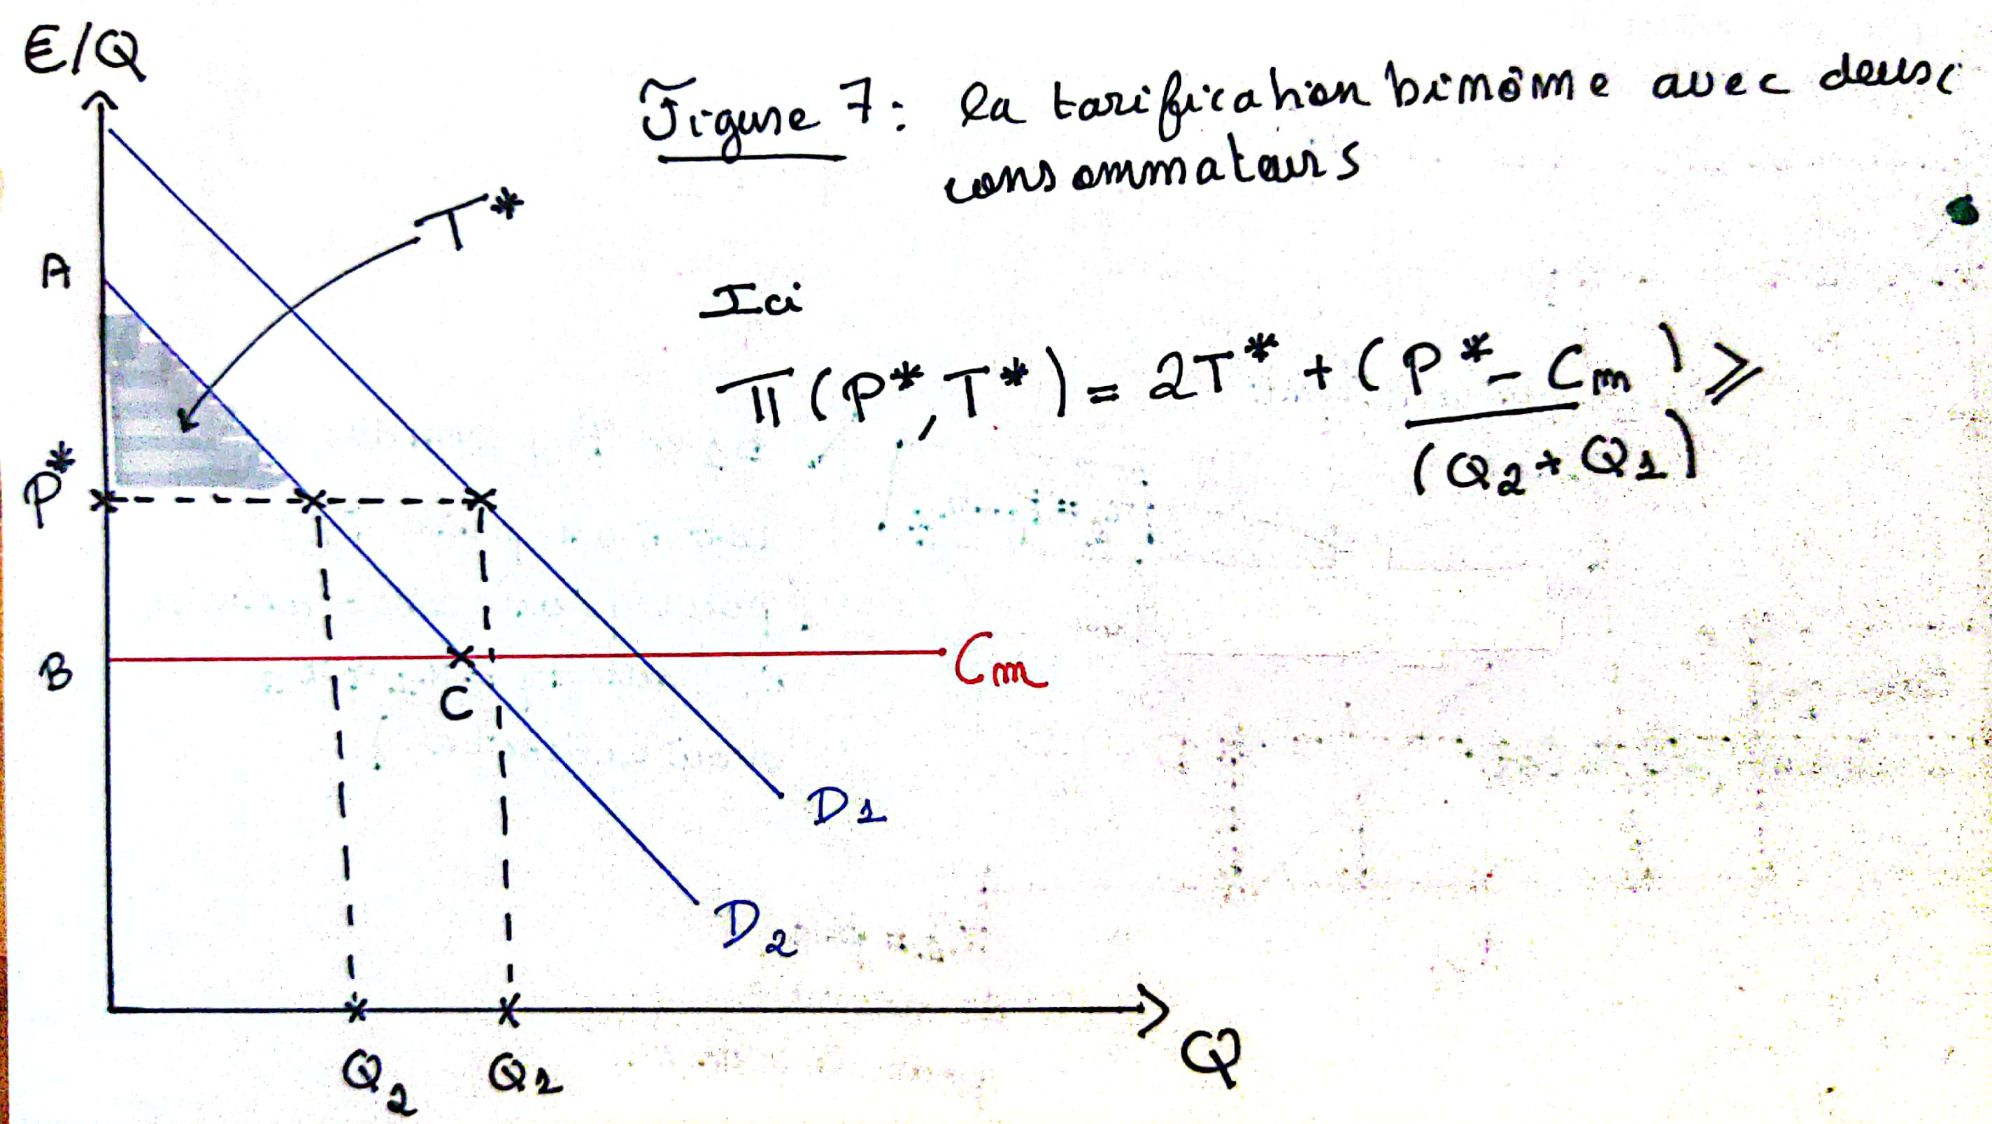 €/Q
Figure 7: la tarification binôme avec deux
consommateurs
T*
A
Ici
π(P*, T*) = 2T* + (P* - Cm) ≥
(Q2 + Q1)
P*
B
Cm
C
D1
D2
Q
Q2
Q1